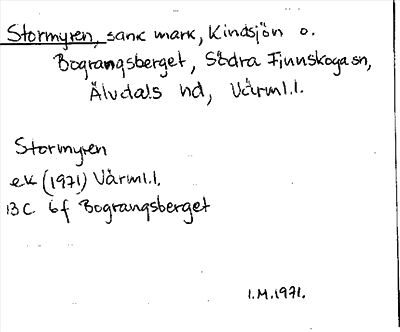 Stormyren, sank mark, Kindsjön o.
Bograngsberget, Södra Finnskoga sn,
Älvdals hd, Värml.l.
Stormyren
ek (1971) Värml.l.
13 C 6f Bograngsberget
I.M.1971.